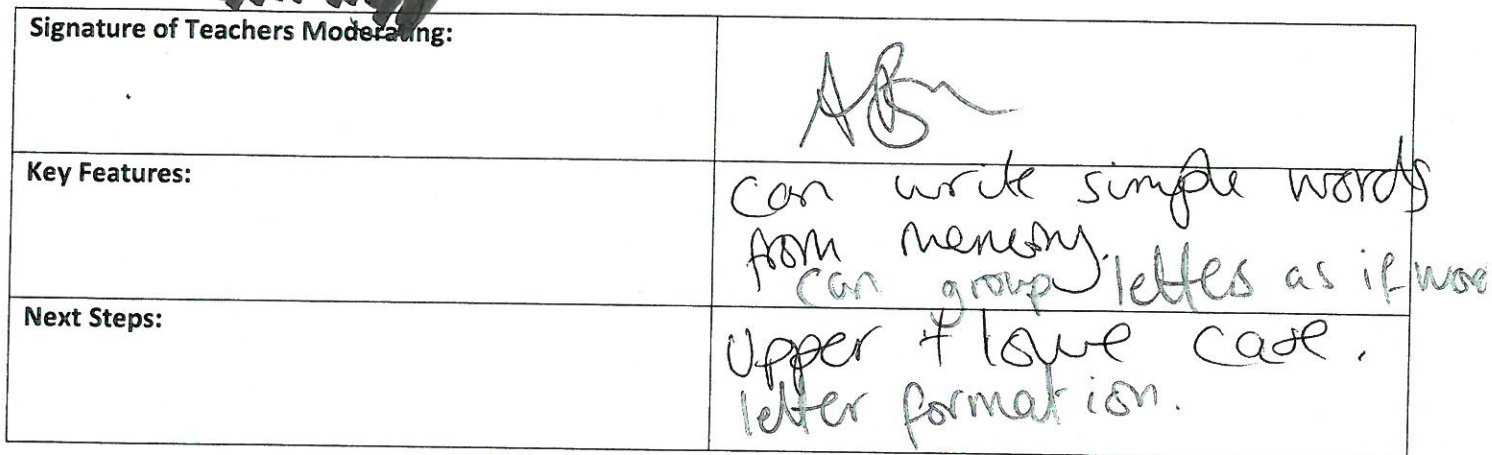 Signature of Teachers Moderating:
Key Features:
can write simple words
from memory.
can group letters as if
Next Steps:
Upper + lowe case.
letter formation.